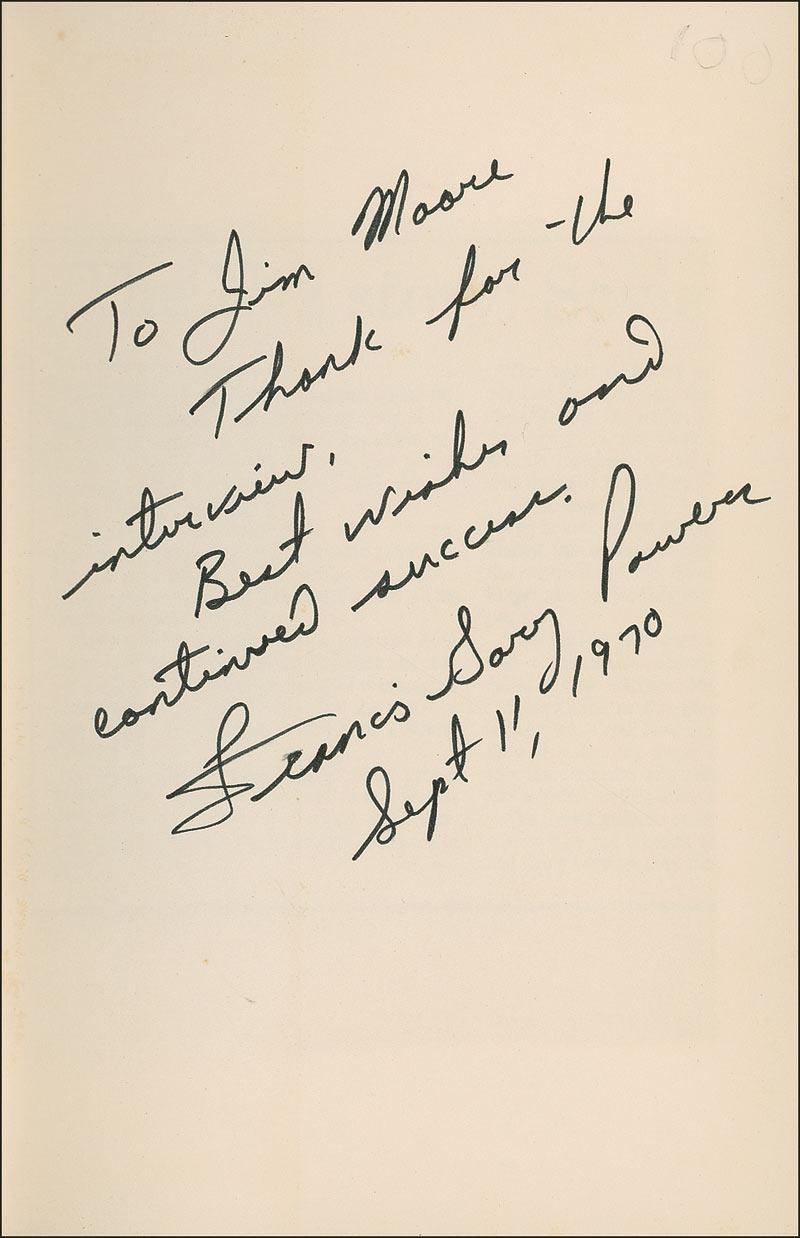 100
To Jim Moore
Thank for the
interview.
Best wishes and
continued success.
Francis Gary Powers
Sept 11, 1970